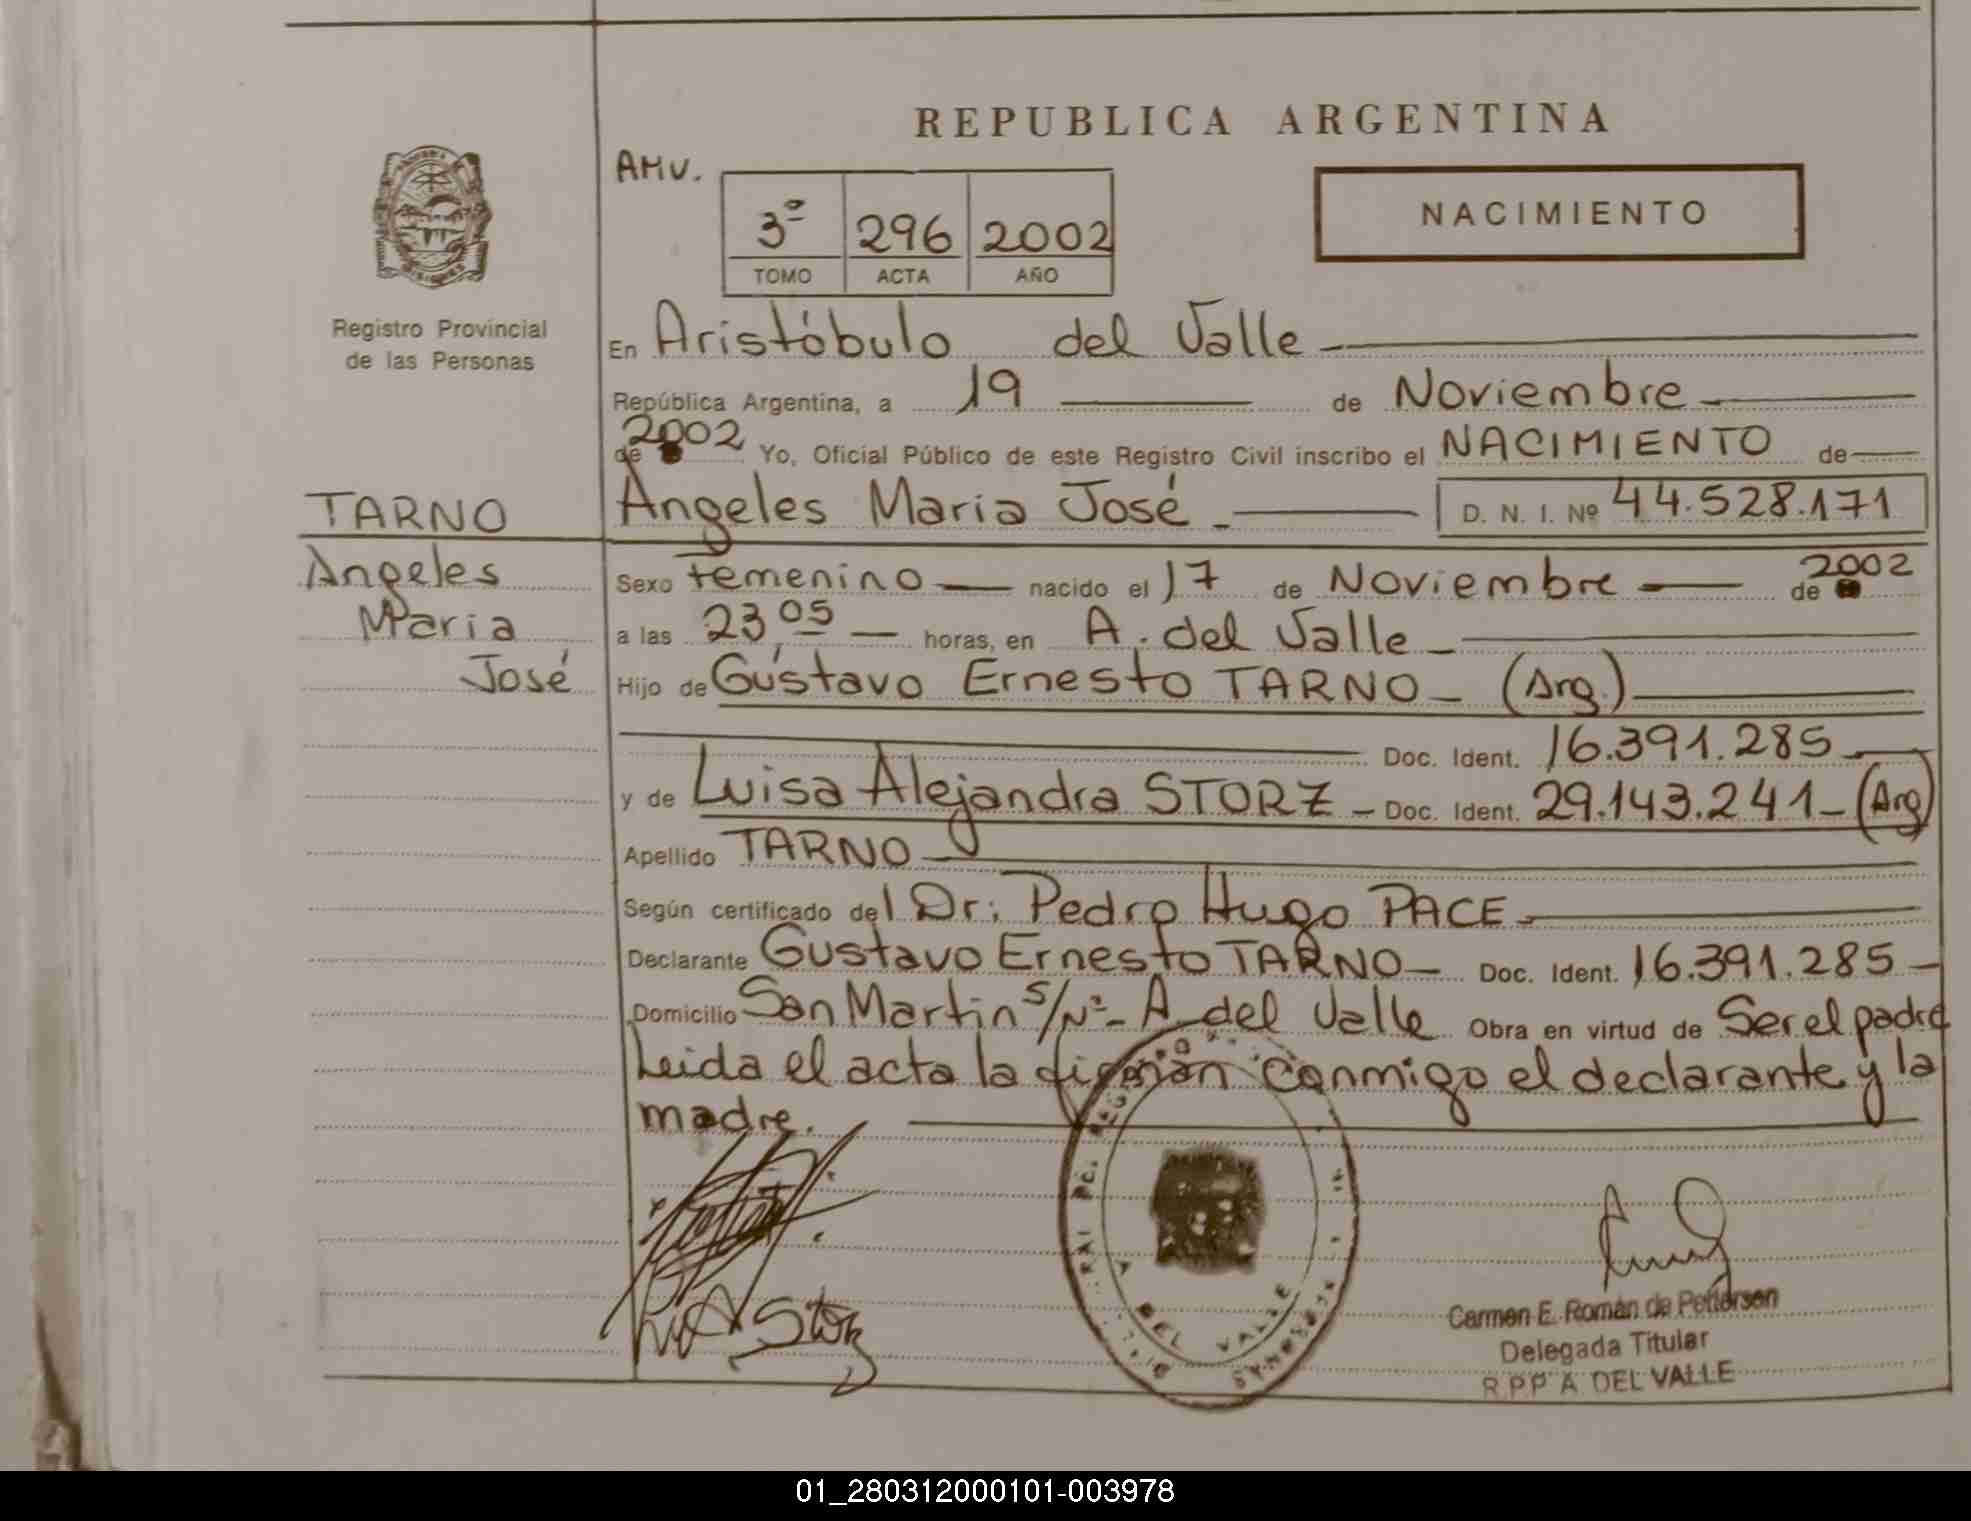 REPUBLICA ARGENTINA
AMV.
3º 296 2002
TOMO ACTA AÑO
NACIMIENTO
Registro Provincial
de las Personas
En Aristóbulo del Valle
República Argentina, a 19 de Noviembre
de 2002 Yo, Oficial Público de este Registro Civil inscribo el NACIMIENTO de
TARNO
Angeles Maria José
D. N. I. Nº 44.528.171
Angeles
Maria
José
Sexo femenino nacido el 17 de Noviembre de 2002
a las 23,05 horas, en A. del Valle
Hijo de Gustavo Ernesto TARNO (Arg.)
Doc. Ident. 16.391.285
y de Luisa Alejandra STORZ Doc. Ident. 29.143.241 (Arg)
Apellido TARNO
Según certificado del Dr: Pedro Hugo PACE
Declarante Gustavo Ernesto TARNO Doc. Ident. 16.391.285
Domicilio San Martin S/Nº A. del Valle Obra en virtud de Ser el padre
Leida el acta la firman conmigo el declarante y la
madre.
A Storz
DEL VALLE
Carmen E. Román de Pettersen
Delegada Titular
R.P.P A. DEL VALLE
01_280312000101-003978